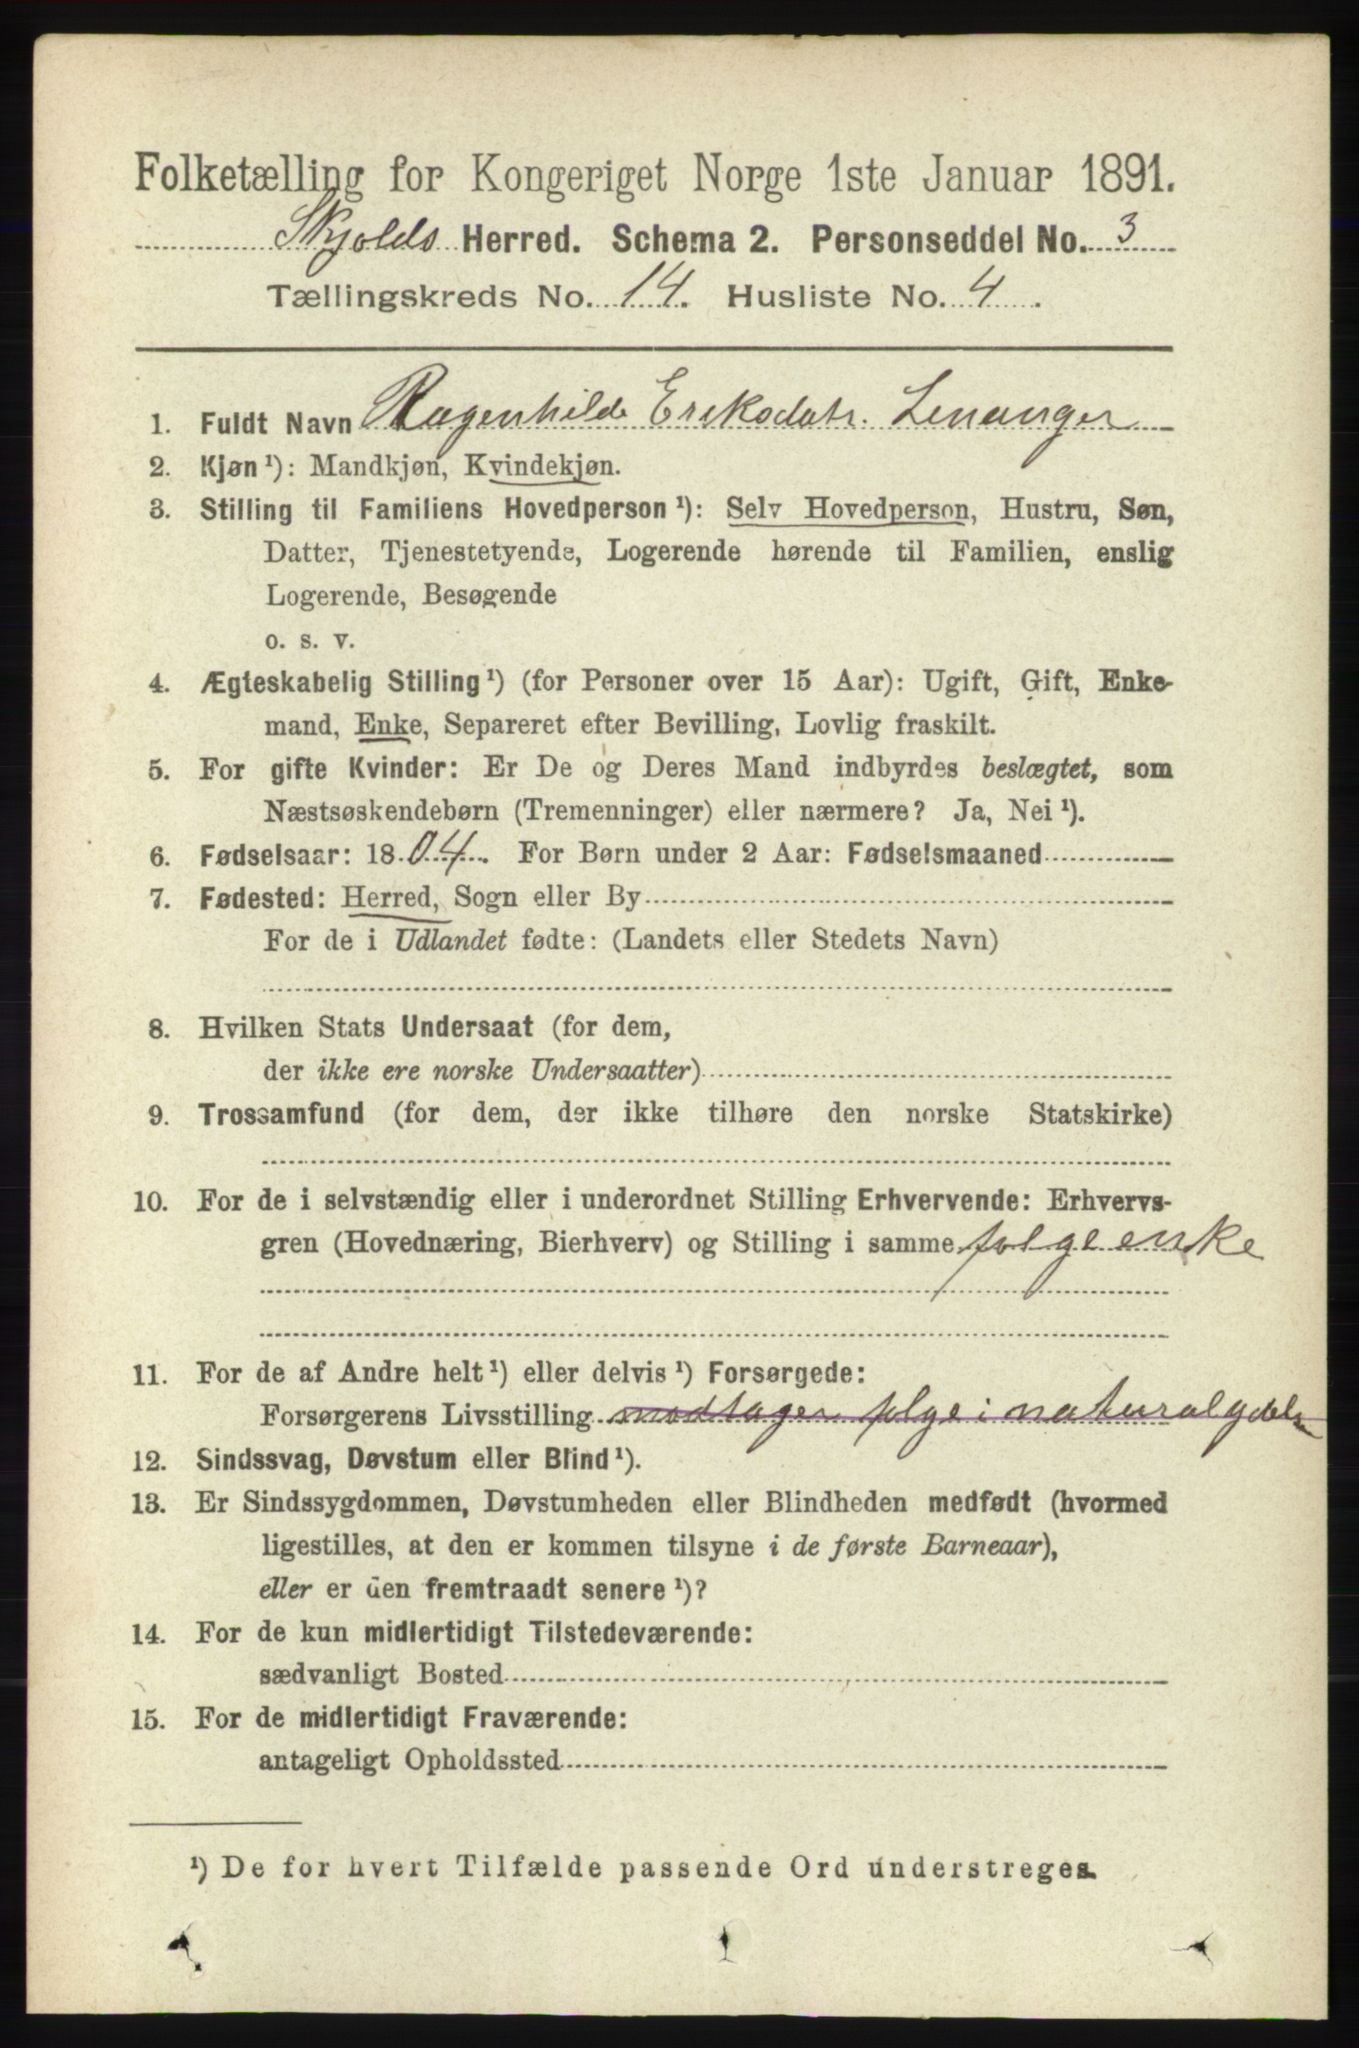 Folketælling for Kongeriget Norge 1ste Januar 1891.
Skjolds Herred. Schema 2. Personseddel No. 3
Tællingskreds No. 14. Husliste No. 4.
1. Fuldt Navn Ragenhilde Eriksdatr. Lenanger
2. Kjøn ¹): Mandkjøn, Kvindekjøn.
3. Stilling til Familiens Hovedperson ¹): Selv Hovedperson, Hustru, Søn,
Datter, Tjenestetyende, Logerende hørende til Familien, enslig
Logerende, Besøgende
o. s. v.
4. Ægteskabelig Stilling ¹) (for Personer over 15 Aar): Ugift, Gift, Enke-
mand, Enke, Separeret efter Bevilling, Lovlig fraskilt.
5. For gifte Kvinder: Er De og Deres Mand indbyrdes beslægtet, som
Næstsøskendebørn (Tremenninger) eller nærmere? Ja, Nei ¹).
6. Fødselsaar: 1804. For Børn under 2 Aar: Fødselsmaaned
7. Fødested: Herred, Sogn eller By
For de i Udlandet fødte: (Landets eller Stedets Navn)
8. Hvilken Stats Undersaat (for dem,
der ikke ere norske Undersaatter)
9. Trossamfund (for dem, der ikke tilhøre den norske Statskirke)
10. For de i selvstændig eller i underordnet Stilling Erhvervende: Erhvervs-
gren (Hovednæring, Bierhverv) og Stilling i samme folgeenke
11. For de af Andre helt ¹) eller delvis ¹) Forsørgede:
Forsørgerens Livsstilling modtager folge i naturalydelse
12. Sindssvag, Døvstum eller Blind ¹).
13. Er Sindssygdommen, Døvstumheden eller Blindheden medfødt (hvormed
ligestilles, at den er kommen tilsyne i de første Barneaar),
eller er den fremtraadt senere ¹)?
14. For de kun midlertidigt Tilstedeværende:
sædvanligt Bosted
15. For de midlertidigt Fraværende:
antageligt Opholdssted
¹) De for hvert Tilfælde passende Ord understreges.